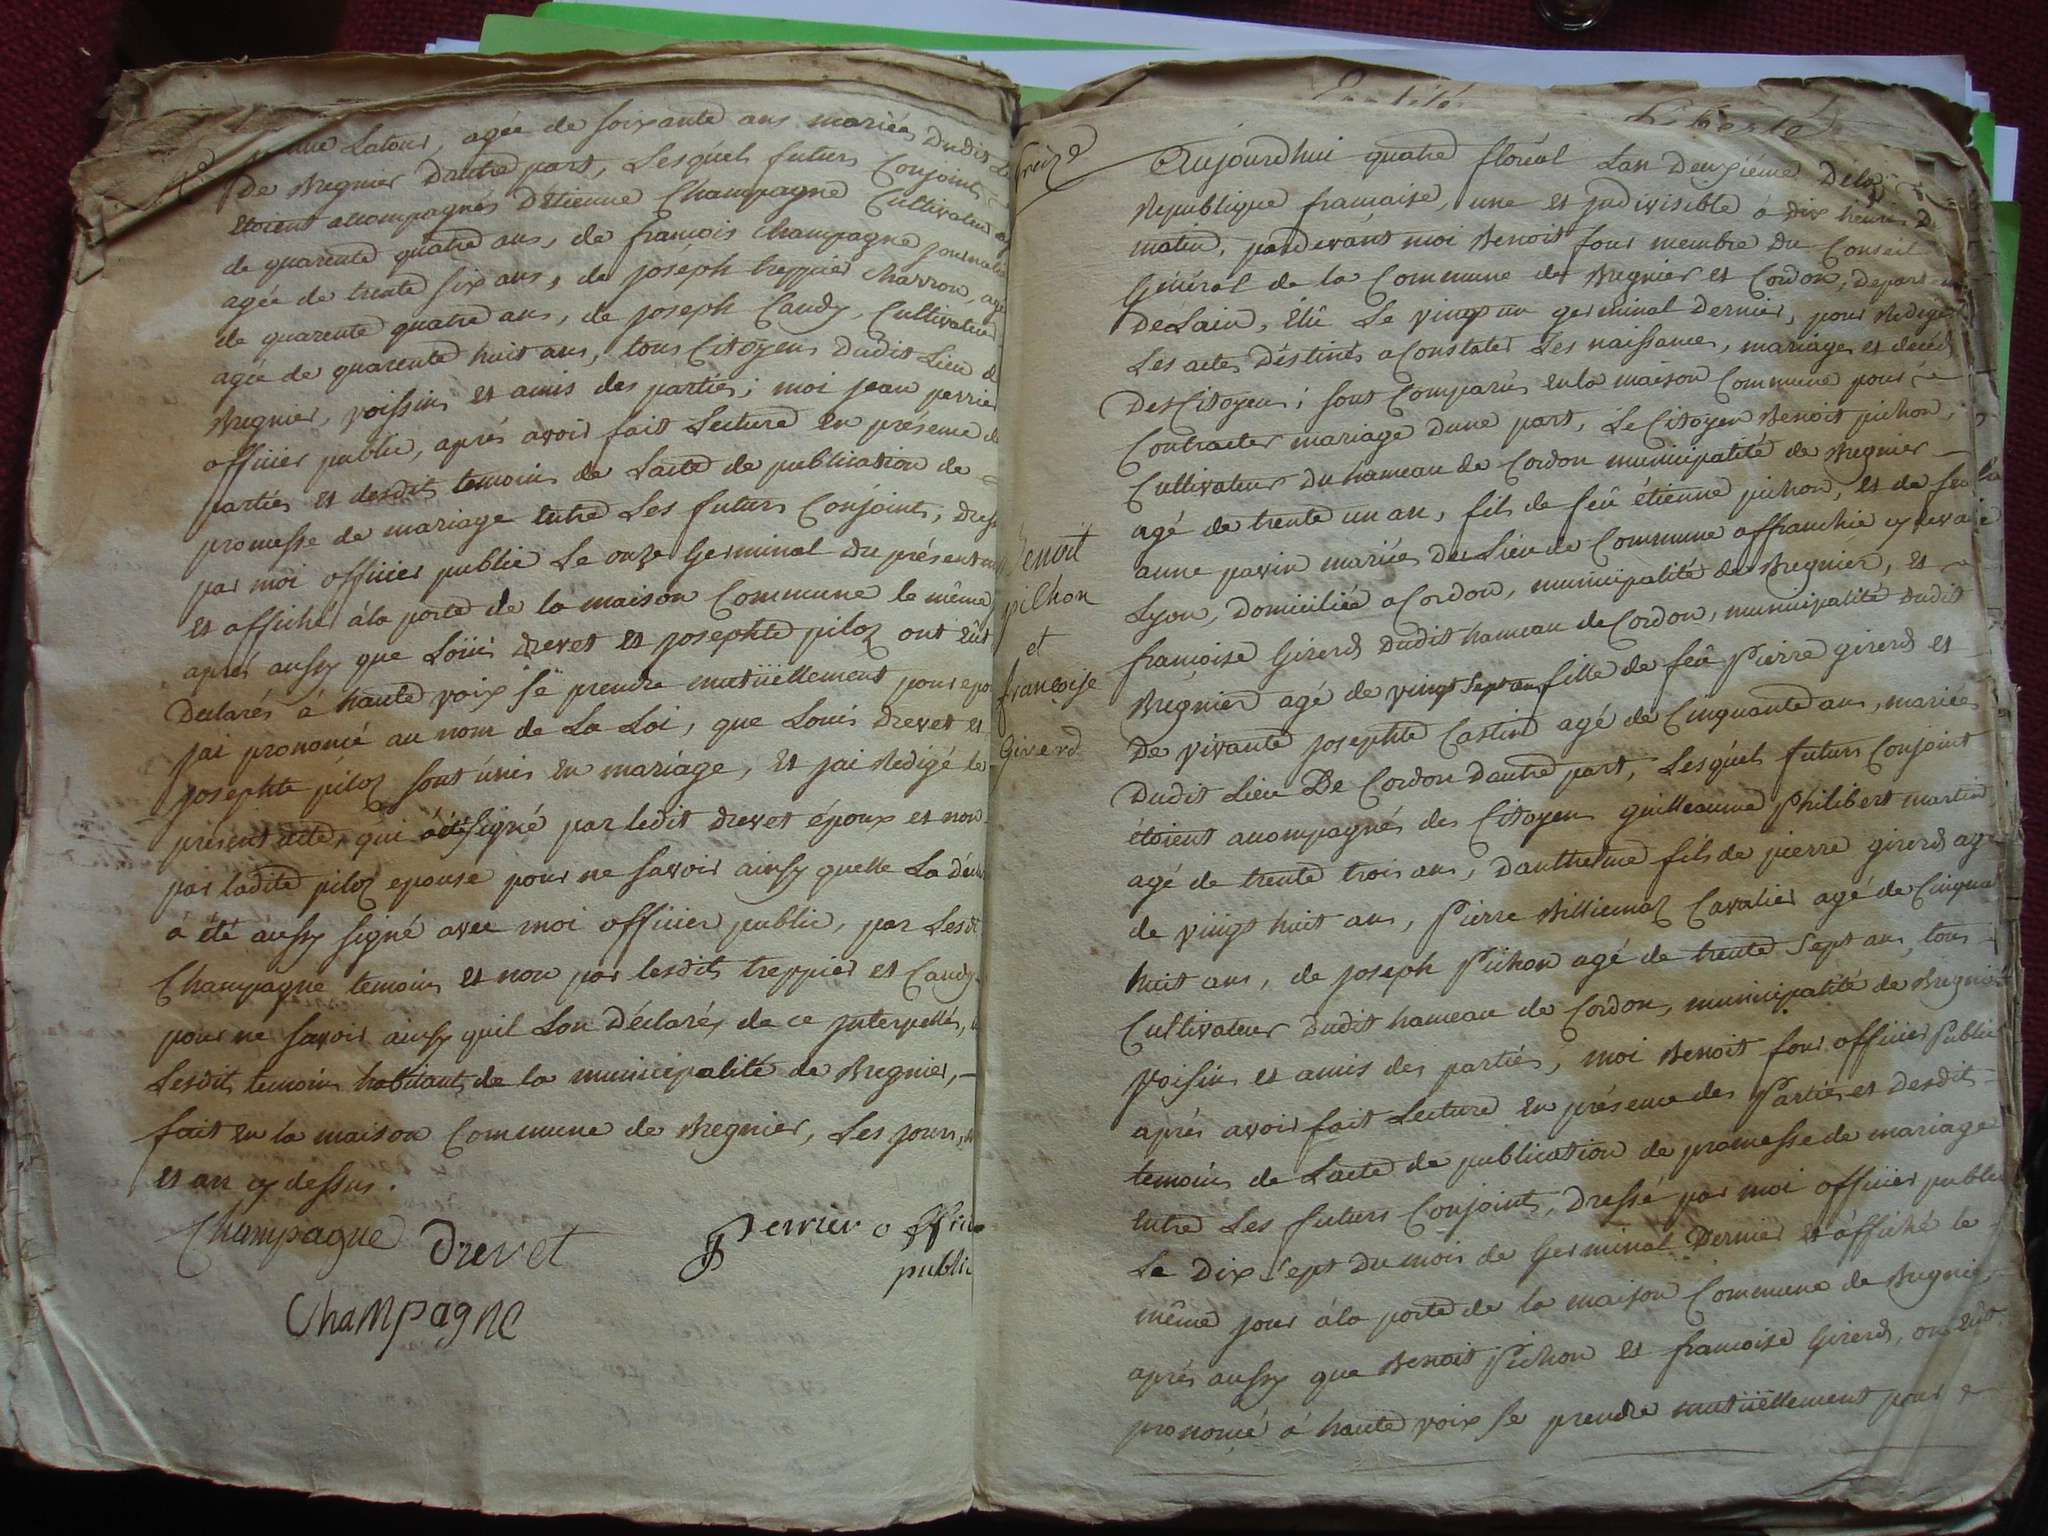 Latour, agée de soixante ans mariée dudit
De Bregnier D'autre part, Lesquels futurs Conjoints
étoient accompagnés D'étienne Champagne Cultivateur
de quarente quatre ans, de françois Champagne journalier
agée de trente six ans, de joséph treppier Charron, agé
de quarente quatre ans, de joseph Caudy, Cultivateur
agée de quarente huit ans, tous Citoyens dudit Lieu de
Bregnier, voissins et amis des parties; moi jean perrier
officier public, aprés avoir fait Lecture en présence de
parties et desdits temoins de Lacte de publication de
promesse de mariage entre Les futurs Conjoints, dressé
par moi officier public Le onze Germinal du présent
et affiché à la porte de la maison Commune le même
aprés aussy que Loüis drevet et josephte piloz ont eüt
Déclarés à haute voix se prendre mutüellement pour
jai prononcé au nom de La Loi, que Louis drevet et
josephte piloz sont unis en mariage, et jai Redigé le
présent acte, qui a été signé par ledit drevet époux et non
par ladite piloz epouse pour ne savoir ainsy quelle La
à été aussy signé avec moi officier public, par Lesd
Champagne temoins et non par lesdits treppier et Caudy
pour ne savoir ainsy quil Lon Déclarés de ce jnterpellés,
Lesdits temoins habitants de la municipalité de Bregnier,
fait en la maison Commune de Bregnier, Les jours,
et an cy dessus.
Champagne Drevet Perrier offici
public
Champagne
Egalité Liberté
treize
Aujourdhui quatre floréal Lan deuxiéme Déla
Republique française, une et jndivisible à dix heures Du
matin, pardevant moi Benoit four membre du Conseil
Général de la Commune de Bregnier et Cordon, Departement
De Lain, élu Le vingt un germinal Dernier, pour Rediger
Les actes Déstinés a Constater Les naissances, mariages et décés
Des Citoyens; sont Comparus en la maison Commune pour
Contracter mariage dune part, Le Citoyen Benoit pichon,
Cultivateur du hameau de Cordon municipalité de Bregnier
agé de trente un an, fils de feû étienne pichon, et de
anne pavin mariés du Lieu de Commune affranchie cy devant
Lyon, domiciliée a Cordon, municipalité de Bregnier, et
françoise Girerd dudit hameau de Cordon, municipalité dudit
Bregnier agé de vingt sept ans fille de feû Pierre girerd et
De vivante josephte Castin agé de Cinquante ans, mariés
Dudit Lieu De Cordon dautre part, Lesquels futurs Conjoint
étoient accompagnés des Citoyens guilleaume Philibert martin,
agé de trente trois ans, danthelme fils de pierre girerd agé
de vingt huit ans, Pierre Billiemaz Cavalier agé de Cinquante
huit ans, de joseph Pichon agé de trente Sept ans, tous
Cultivateur dudit hameau de Cordon, municipalité de Bregnier
Voisins et amis des parties, moi Benoit four officier Public
aprés avoir fait Lecture en présence des Parties et desdits
temoins de Lacte de publication de promesse de mariage
entre Les futurs Conjoints, dressé par moi officier public
Le Dix Sept du mois de Germinal Dernier et affiché le
même jour à la porte de la maison Commune de Bregnier,
aprés aussy que Benoit Pichon et françoise Girerd, ont eût
prononcé à haute voix se prendre mutüellement pour
Benoit
pilhon
et
françoise
Girerd